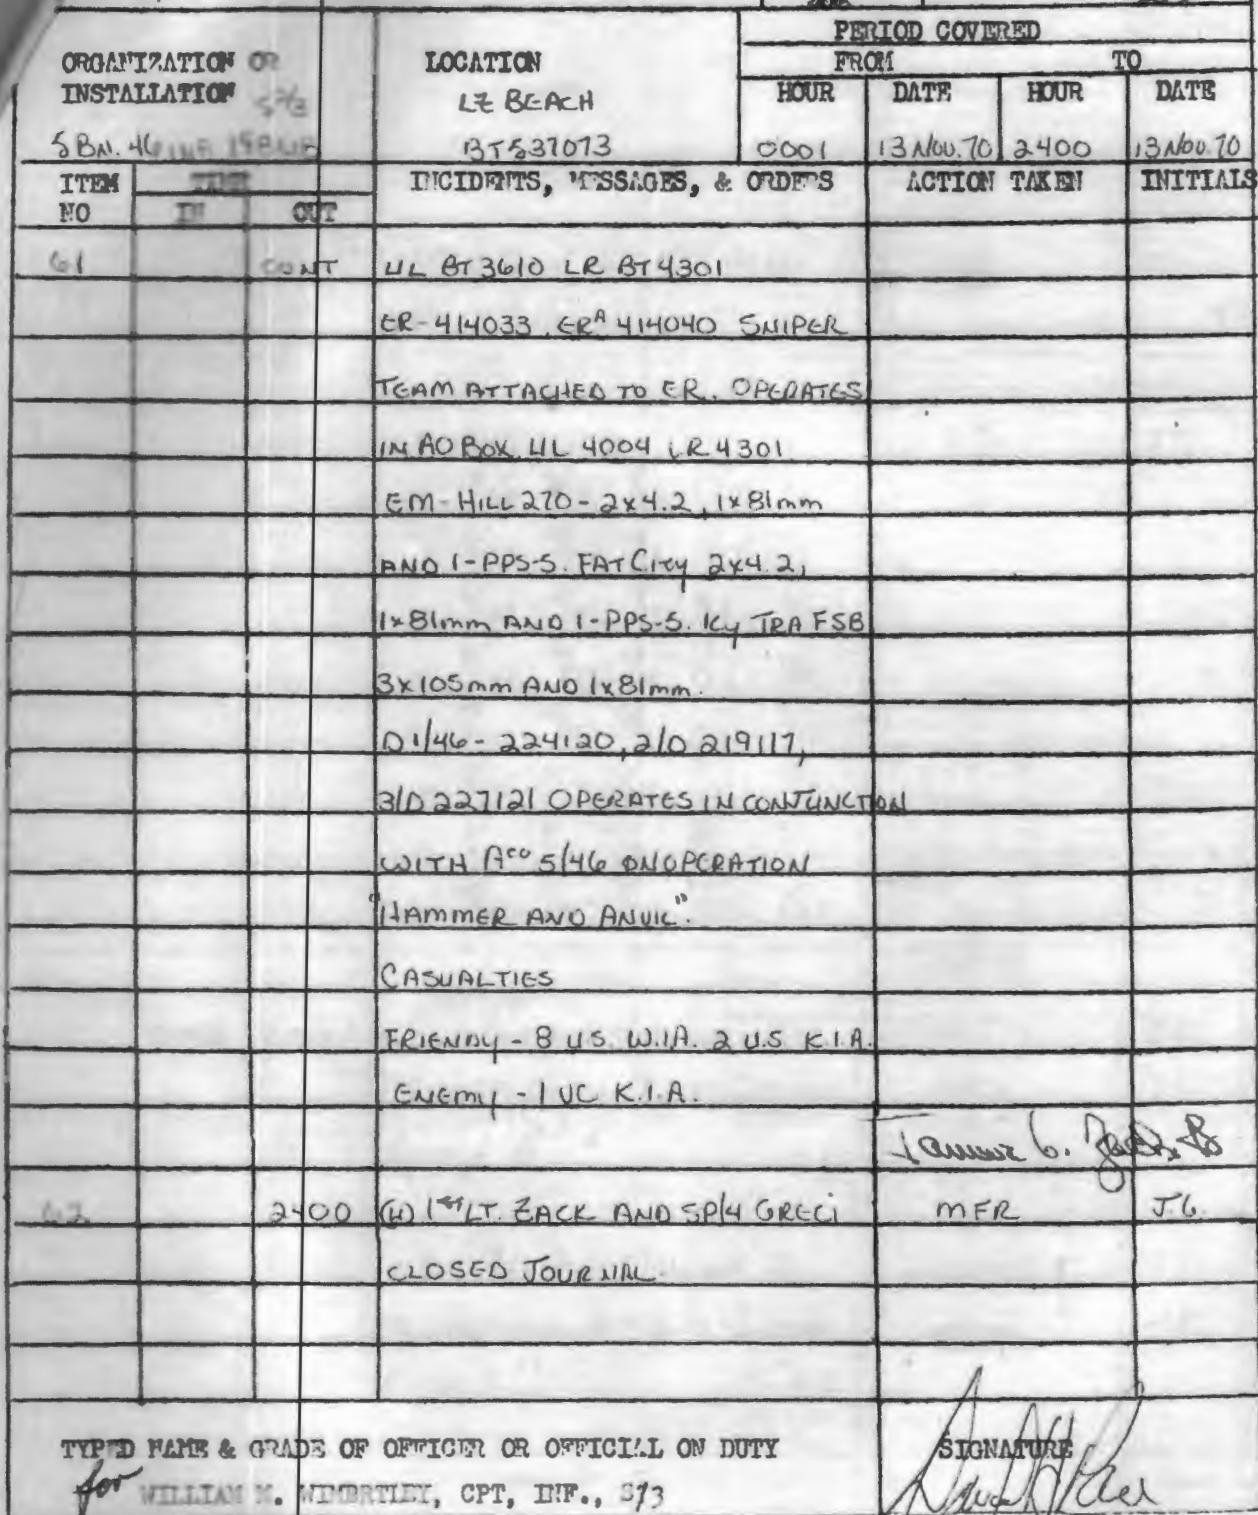 PERIOD COVERED
ORGANIZATION OR LOCATION FROM TO
INSTALLATION LZ BEACH HOUR DATE HOUR DATE
5 BN. 46 INF 198 LIB BT537073 0001 13 NOV. 70 2400 13 NOV. 70
ITEM TIME INCIDENTS, MESSAGES, & ORDERS ACTION TAKEN INITIALS
NO IN OUT
61 CONT UL BT 3610 LR BT 4301
ER-414033. ERA 414040 SNIPER
TEAM ATTACHED TO ER. OPERATES
IN AO BOX UL 4004 LR 4301
EM-HILL 270-2x4.2, 1x81mm
AND 1-PPS-5. FAT CITY 2x4.2,
1x81mm AND 1-PPS-5. KY TRA FSB
3x105mm AND 1x81mm.
D 1/46-224120, 2/D 219117,
3/D 227121 OPERATES IN CONJUNCTION
WITH A CO 5/46 ON OPERATION
"HAMMER AND ANVIL".
CASUALTIES
FRIENDLY - 8 U.S. W.I.A. 2 U.S K.I.A.
ENEMY - 1 VC K.I.A.
62 2400 (U) 1st LT. ZACK AND SP/4 GRECI MFR J.G.
CLOSED JOURNAL.
TYPED NAME & GRADE OF OFFICER OR OFFICIAL ON DUTY SIGNATURE
for WILLIAM M. WIMBERLEY, CPT, INF., S/3